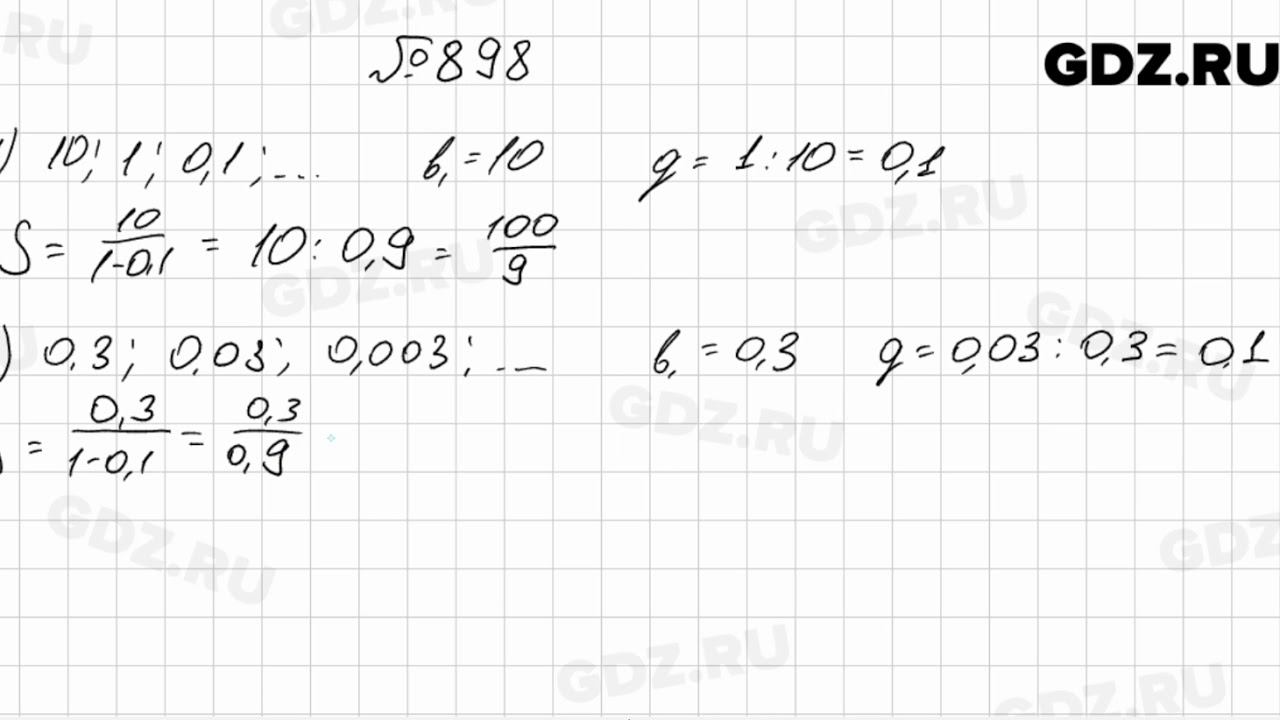 №898
GDZ.RU
) 10; 1; 0,1; ... b₁ = 10 q = 1 : 10 = 0,1
S = 10/(1-0,1) = 10 : 0,9 = 100/9
) 0,3; 0,03; 0,003; ... b₁ = 0,3 q = 0,03 : 0,3 = 0,1
= 0,3/(1-0,1) = 0,3/0,9